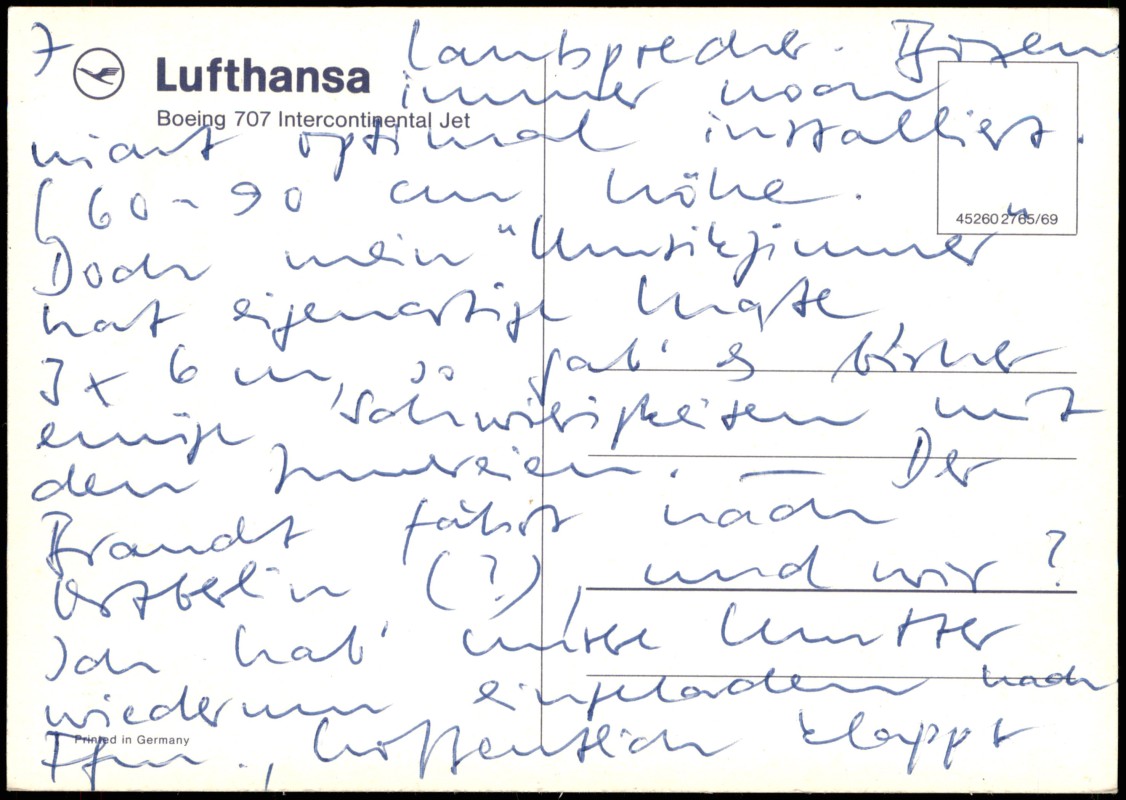 7
Lufthansa
Boeing 707 Intercontinental Jet
Lautsprecher-Boxen
immer noch
nicht optimal installiert.
(60-90 cm Höhe.
45260 2765/69
Doch mein "Musikzimmer"
hat eigenartige Maße
3 x 6 m, so gab' es bisher
einige Schwierigkeiten mit
den . — Der
Brandt fährt nach
Ostberlin (?), und wir?
Ich hab' unsere Mutter
wiederum eingeladen nach
Ffm., hoffentlich klappt
Printed in Germany